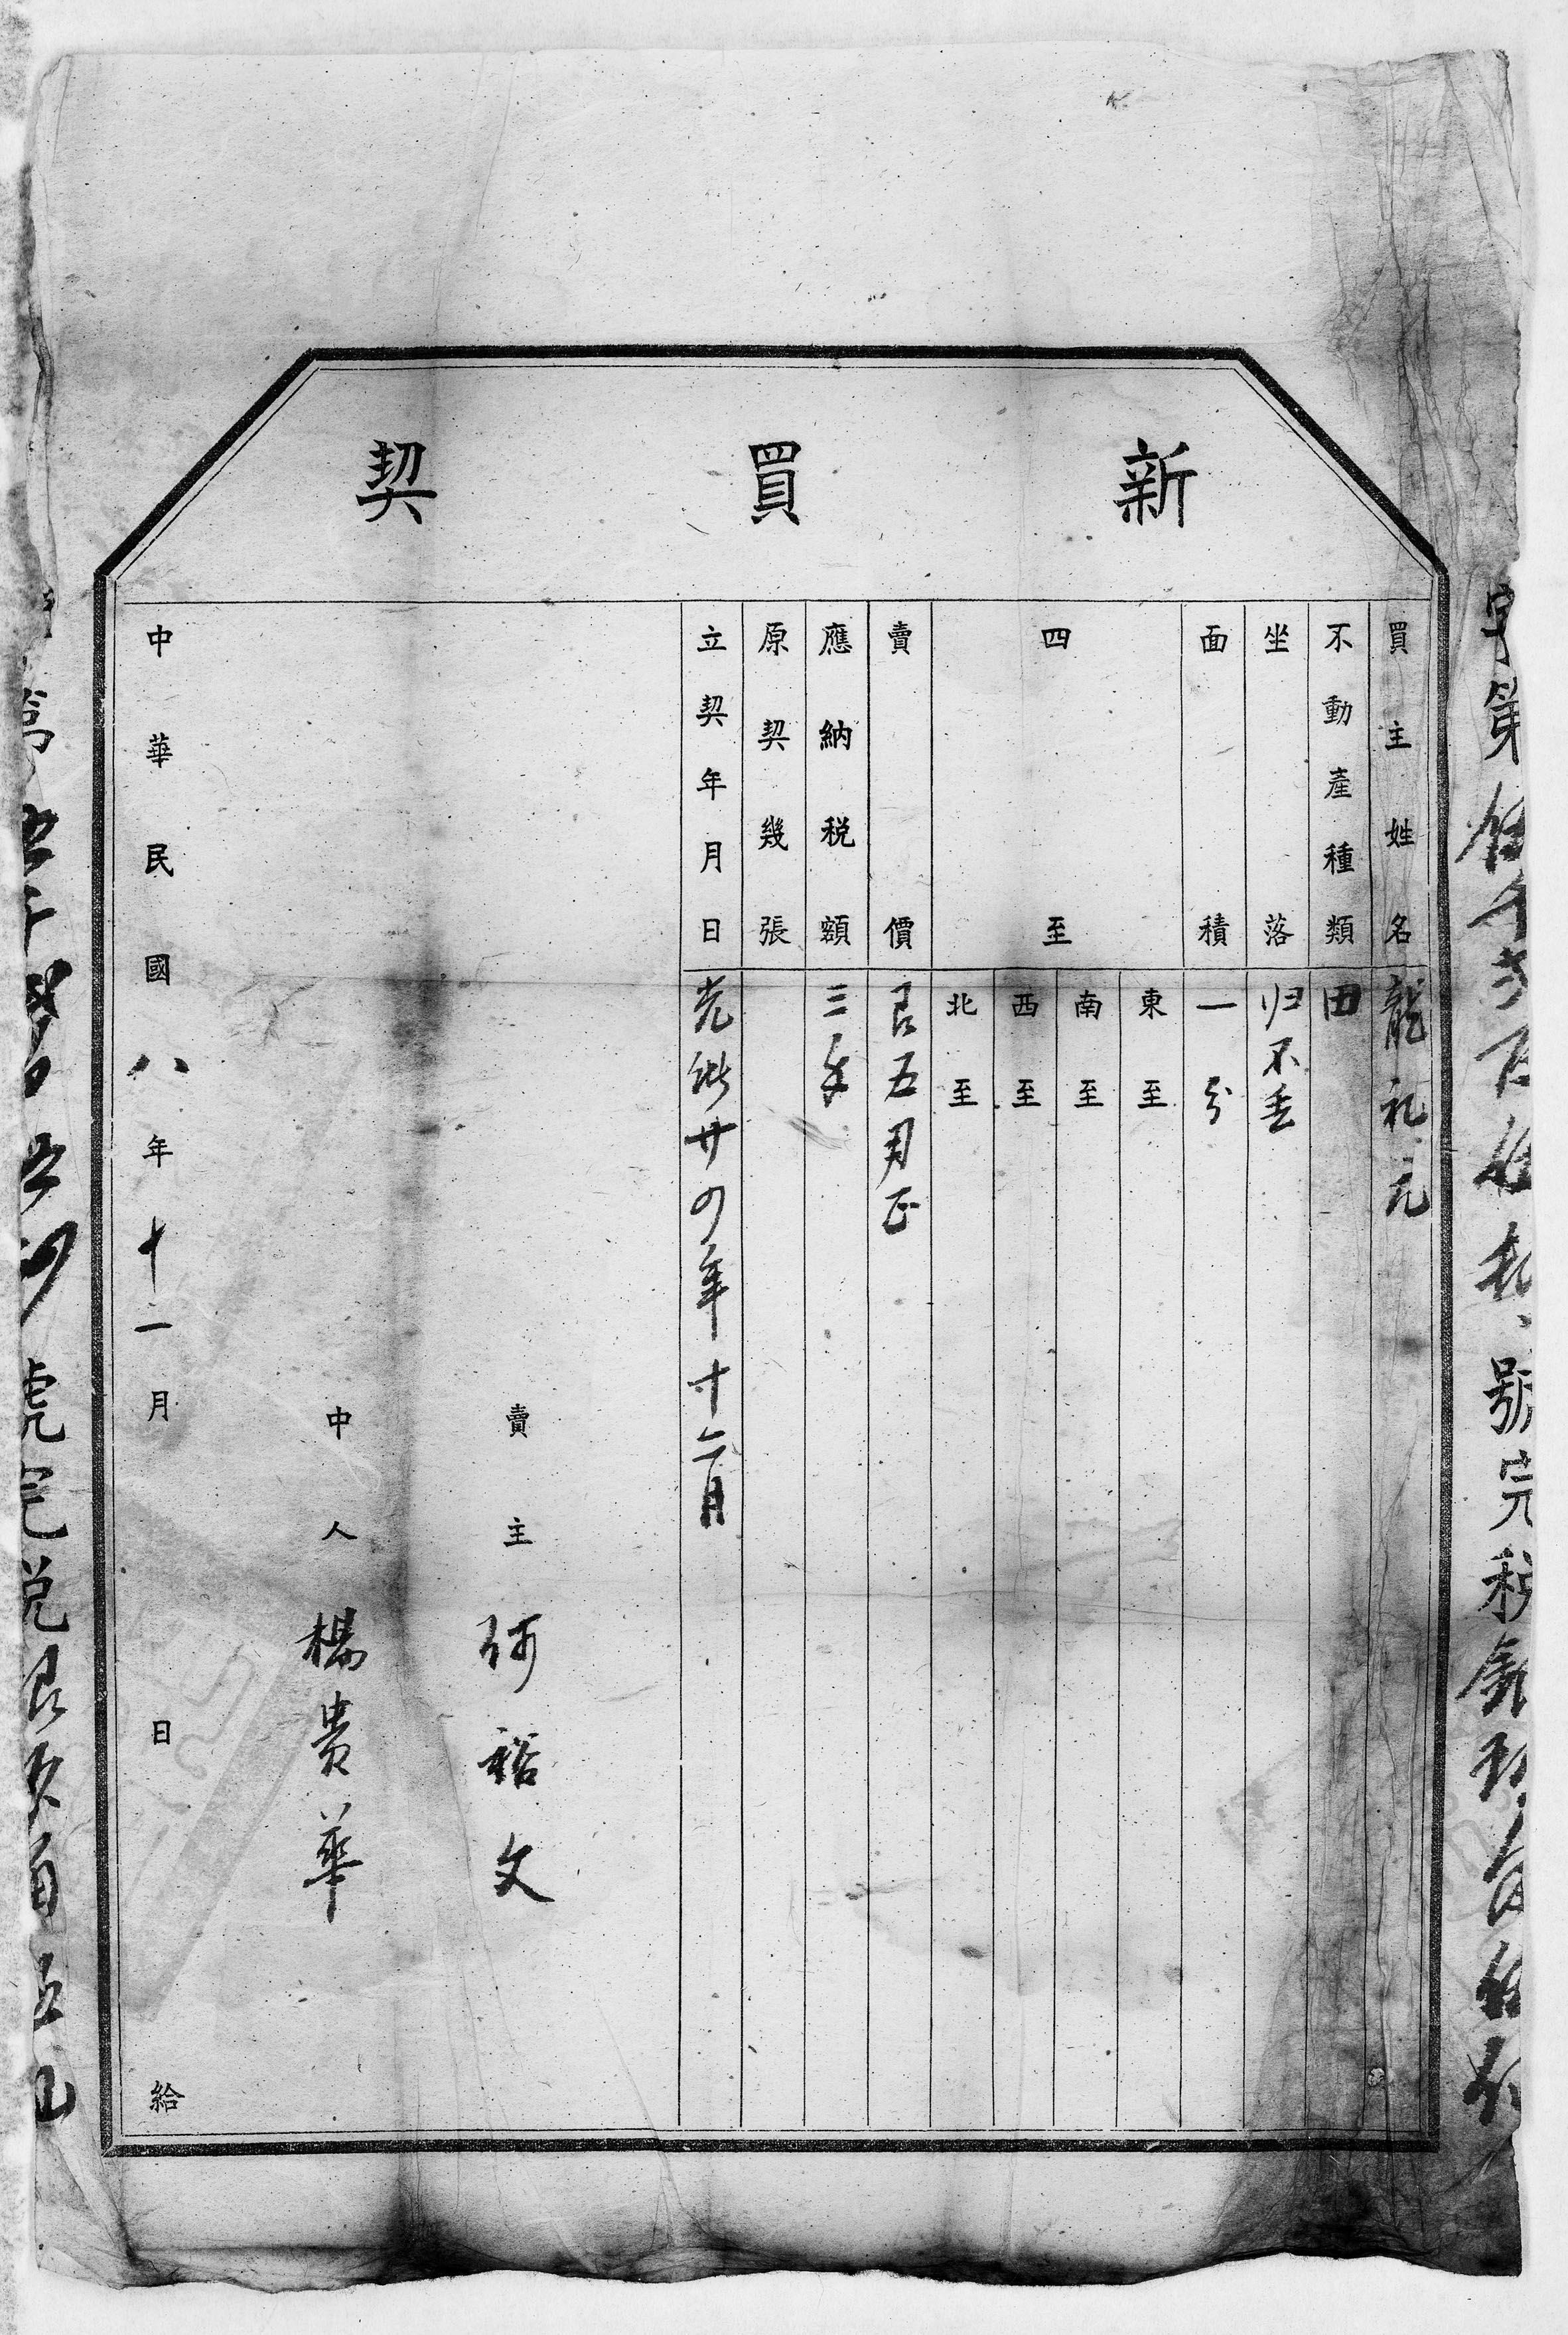 新買契
字第伍千弍百
號完税銀
買主姓名 龍礼元
不動產種類 田
坐落 归不
面積 一分
四至
東至
南至
西至
北至
賣價 艮五
正
應納税額 三
原契幾張
立契年月日 光緒廿四年十二月
賣主 何裕文
中人 楊貴華
中華民國八年十一月 日給
號完税艮